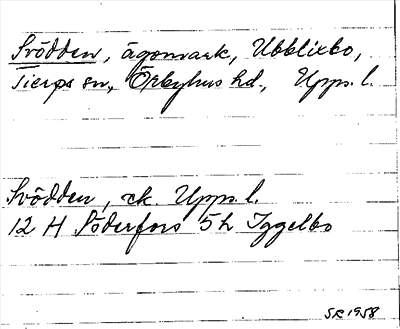 Svödden, ägomark, Ubblixbo,
Tierps sn, Örbyhus hd., Upps. l.
Svödden, ek. Upps. l.
12 H Söderfors 5h Iggelbo
SR 1958